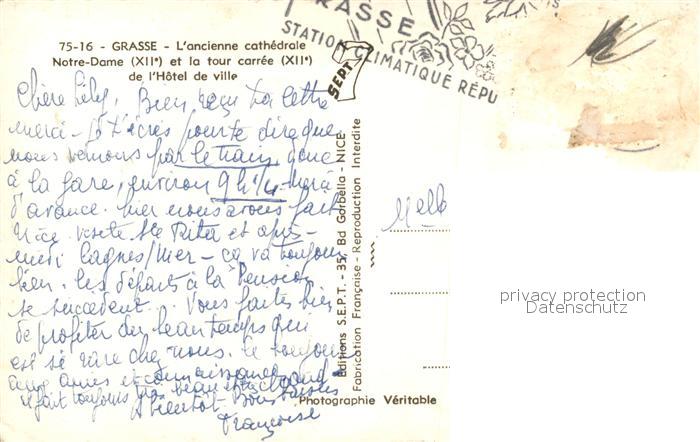 75-16 - GRASSE - L'ancienne cathédrale
Notre-Dame (XIIe) et la tour carrée (XIIe)
de l'Hôtel de ville
GRASSE
STATION CLIMATIQUE RÉPU
Chère Lily, Bien reçu ta lettre
merci - Je t'écris pour te dire que
nous venons par le train donc
à la gare, environ 9h 1/4 - merci
d'avance. hier nous avons fait
Nice visite Ste Rita et après-
midi Cagnes/Mer - ça va toujours
bien. les départs à la Pension
se succèdent... Vous faites bien
de profiter du beau temps qui
est si rare chez nous. le bonjour
aux amies et connaissances
il fait toujours très beau et chaud
A bientôt - Bons baisers
Françoise
Melle
SEPT
Editions S.E.P.T. - 35, Bd Gorbella - NICE
Fabrication Française - Reproduction Interdite
Photographie Véritable
privacy protection
Datenschutz